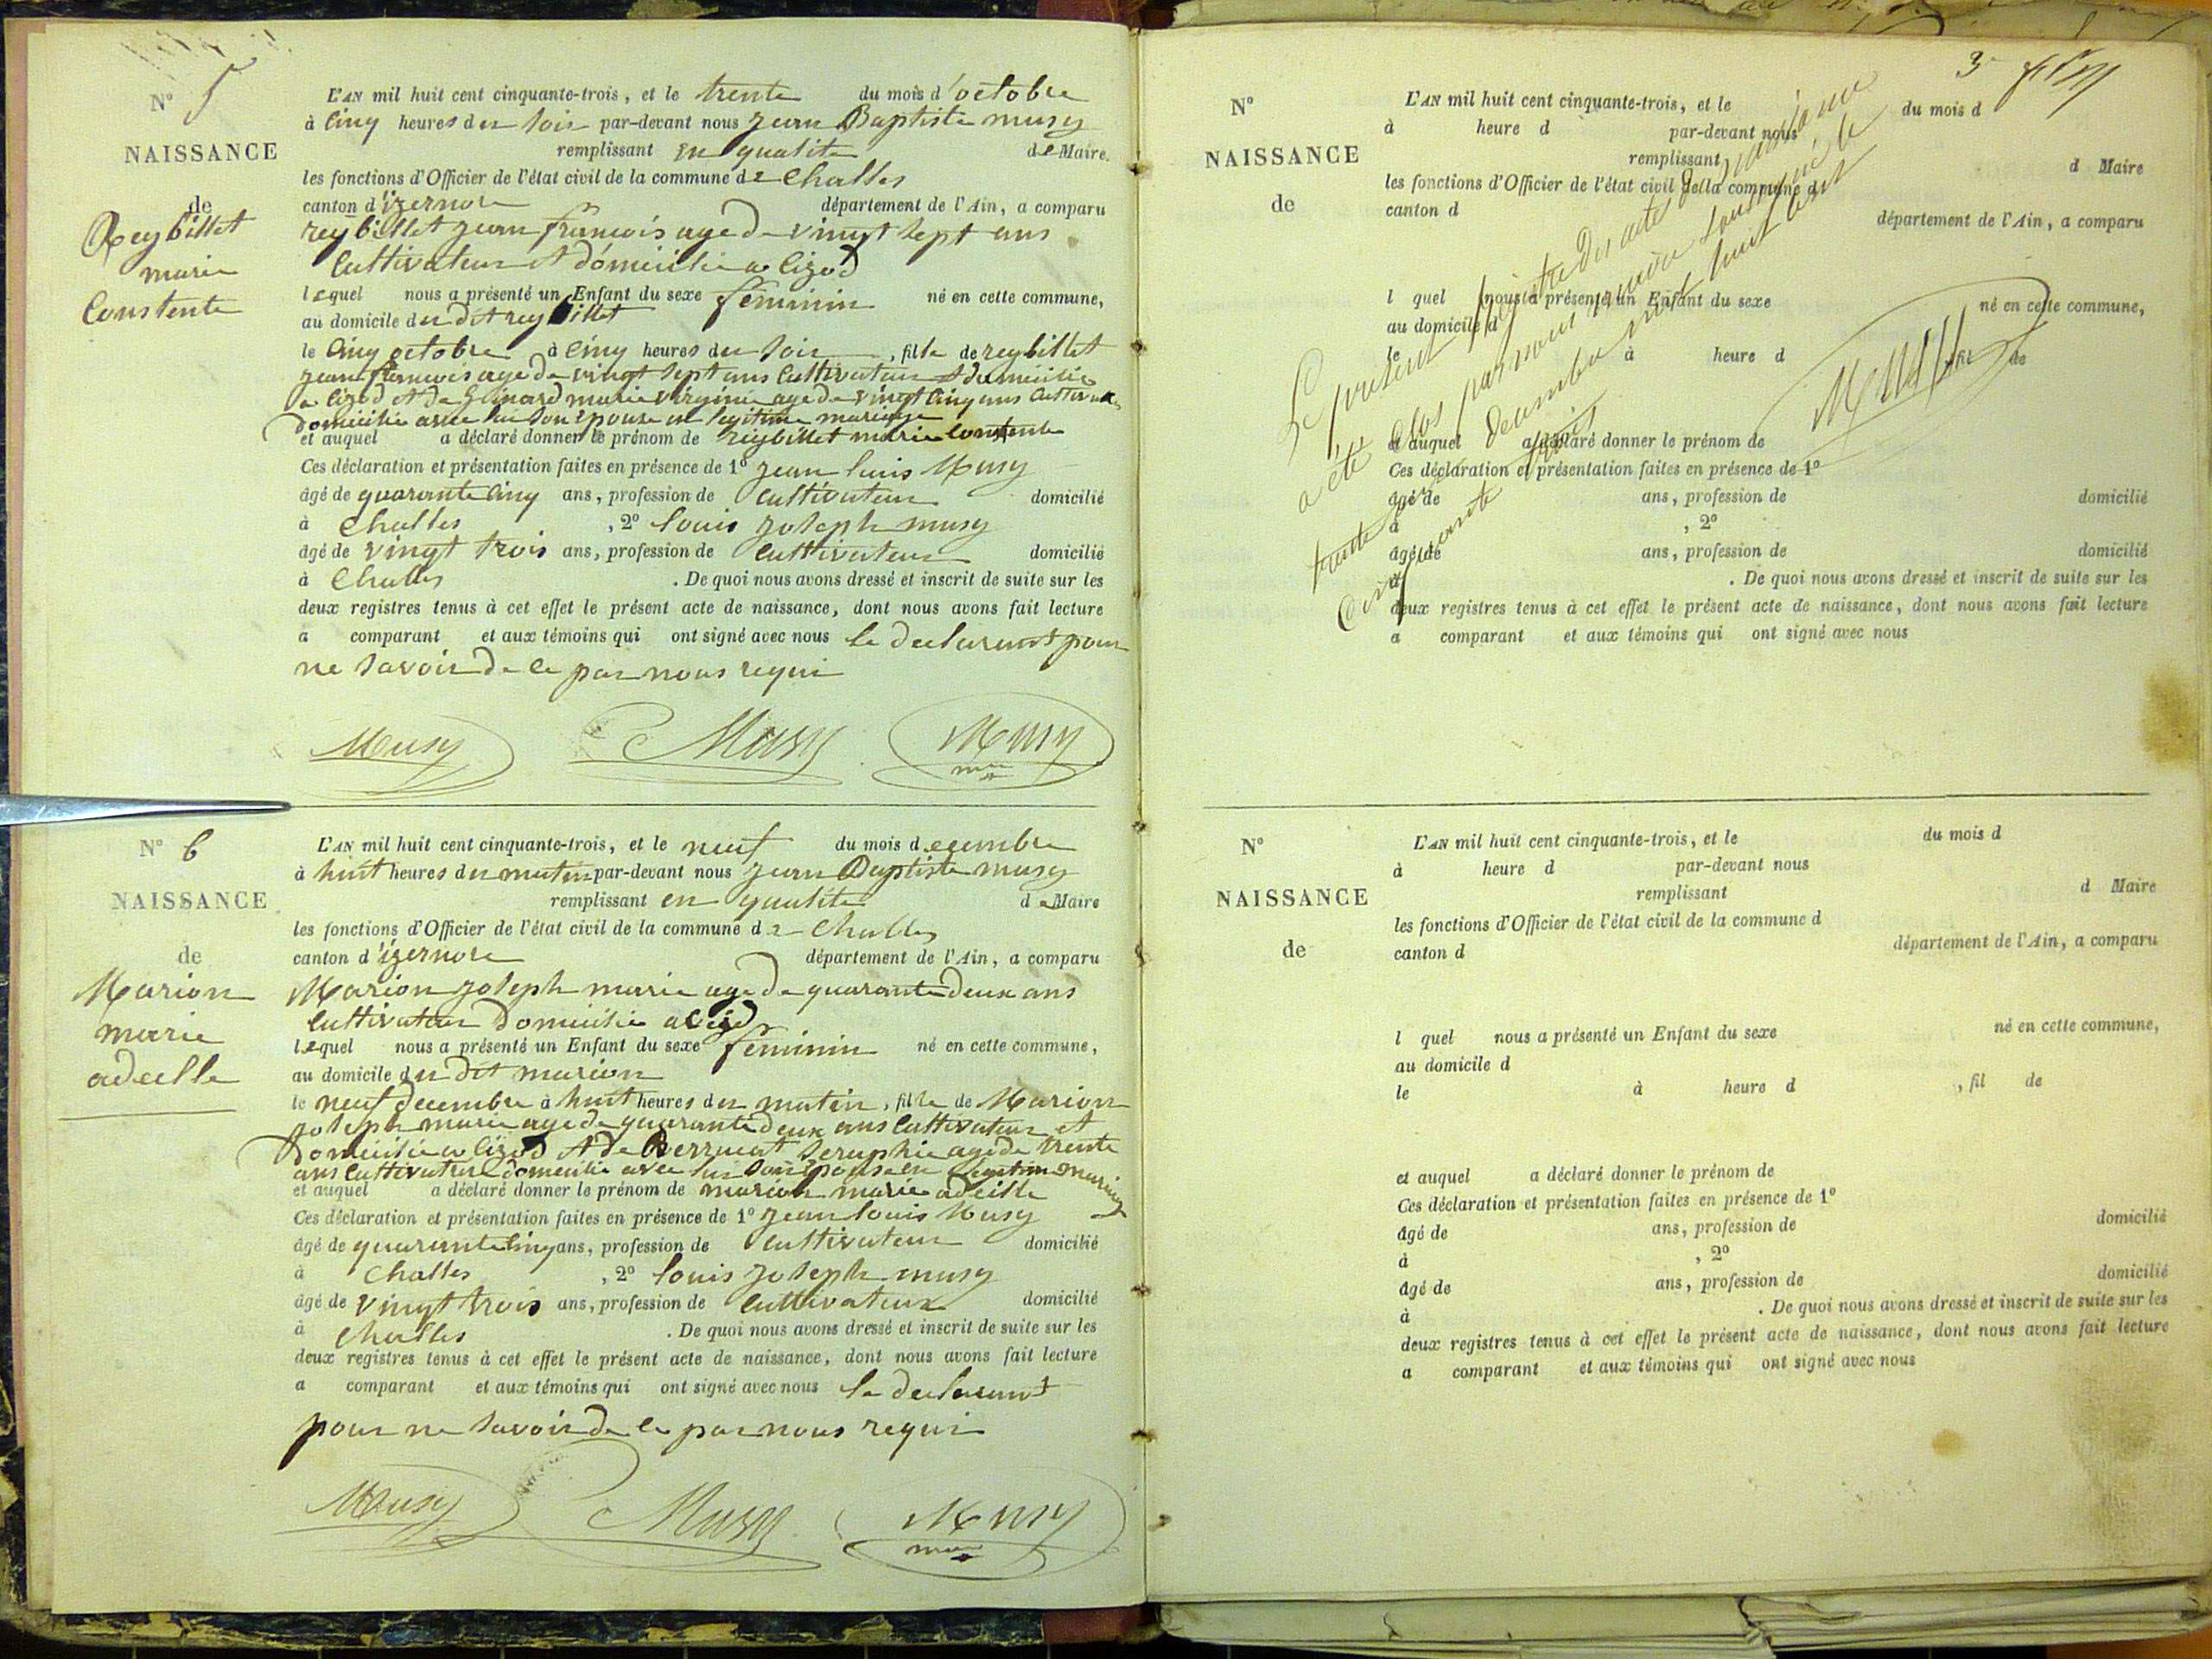 N° 5
NAISSANCE
de
Reybillet
marie
Constente
L'AN mil huit cent cinquante-trois, et le trente du mois d'octobre
à cinq heures du soir par-devant nous jean Baptiste musy
remplissant en qualite de Maire.
les fonctions d'Officier de l'état civil de la commune de Challes
canton d'izernore département de l'Ain, a comparu
reybillet jean françois age de vingt sept ans
cultivateur et domicilie a lizod
lequel nous a présenté un Enfant du sexe féminin né en cette commune,
au domicile du dit reybillet
le cinq octobre à cinq heures du soir, fille de reybillet
jean francois age de vingt sept ans cultivateur et domicilie
a lizod et de marie virginie age de vingt cinq ans
domicilie avec lui son epouse en legitime mariage
et auquel a déclaré donner le prénom de reybillet marie constente
Ces déclaration et présentation faites en présence de 1° jean louis Musy
âgé de quarante cinq ans, profession de cultivateur domicilié
à Challes, 2° louis joseph musy
âgé de vingt trois ans, profession de cultivateur domicilié
à Challes. De quoi nous avons dressé et inscrit de suite sur les
deux registres tenus à cet effet le présent acte de naissance, dont nous avons fait lecture
a comparant et aux témoins qui ont signé avec nous le declarant pour
ne savoir de ce par nous requi
Musy Musy Musy
N° 6
NAISSANCE
de
Marion
marie
adeille
L'AN mil huit cent cinquante-trois, et le neuf du mois decembre
à huit heures du matin par-devant nous jean Baptiste musy
remplissant en qualite de Maire
les fonctions d'Officier de l'état civil de la commune de Challes
canton d'izernore département de l'Ain, a comparu
Marion joseph marie age de quarante deux ans
cultivateur domicilie a
lequel nous a présenté un Enfant du sexe féminin né en cette commune,
au domicile du dit marion
le neuf decembre à huit heures du matin, fille de Marion
joseph marie age de quarante deux ans cultivateur et
domicilie a lizod et de seraphie age de trente
ans cultivatrice domicilie avec lui son epouse en legitime mariage
et auquel a déclaré donner le prénom de marion marie adeille
Ces déclaration et présentation faites en présence de 1° jean louis Musy
âgé de quarante cinq ans, profession de cultivateur domicilié
à Challes, 2° louis joseph musy
âgé de vingt trois ans, profession de cultivateur domicilié
à Challes. De quoi nous avons dressé et inscrit de suite sur les
deux registres tenus à cet effet le présent acte de naissance, dont nous avons fait lecture
a comparant et aux témoins qui ont signé avec nous le declarant
pour ne savoir de ce par nous requi
Musy Musy Musy
3
N°
NAISSANCE
de
L'AN mil huit cent cinquante-trois, et le du mois d
à heure d par-devant nous
remplissant d Maire
les fonctions d'Officier de l'état civil de la commune d
canton d département de l'Ain, a comparu
l quel nous a présenté un Enfant du sexe né en cette commune,
au domicile d
le à heure d, fil de
et auquel a déclaré donner le prénom de
Ces déclaration et présentation faites en présence de 1°
âgé de ans, profession de domicilié
à, 2°
âgé de ans, profession de domicilié
à. De quoi nous avons dressé et inscrit de suite sur les
deux registres tenus à cet effet le présent acte de naissance, dont nous avons fait lecture
a comparant et aux témoins qui ont signé avec nous
Le présent registre des actes de naissance
a été clos par nous maire soussigné le
trente decembre mil huit cent
cinquante trois
N°
NAISSANCE
de
L'AN mil huit cent cinquante-trois, et le du mois d
à heure d par-devant nous
remplissant d Maire
les fonctions d'Officier de l'état civil de la commune d
canton d département de l'Ain, a comparu
l quel nous a présenté un Enfant du sexe né en cette commune,
au domicile d
le à heure d, fil de
et auquel a déclaré donner le prénom de
Ces déclaration et présentation faites en présence de 1°
âgé de ans, profession de domicilié
à, 2°
âgé de ans, profession de domicilié
à. De quoi nous avons dressé et inscrit de suite sur les
deux registres tenus à cet effet le présent acte de naissance, dont nous avons fait lecture
a comparant et aux témoins qui ont signé avec nous